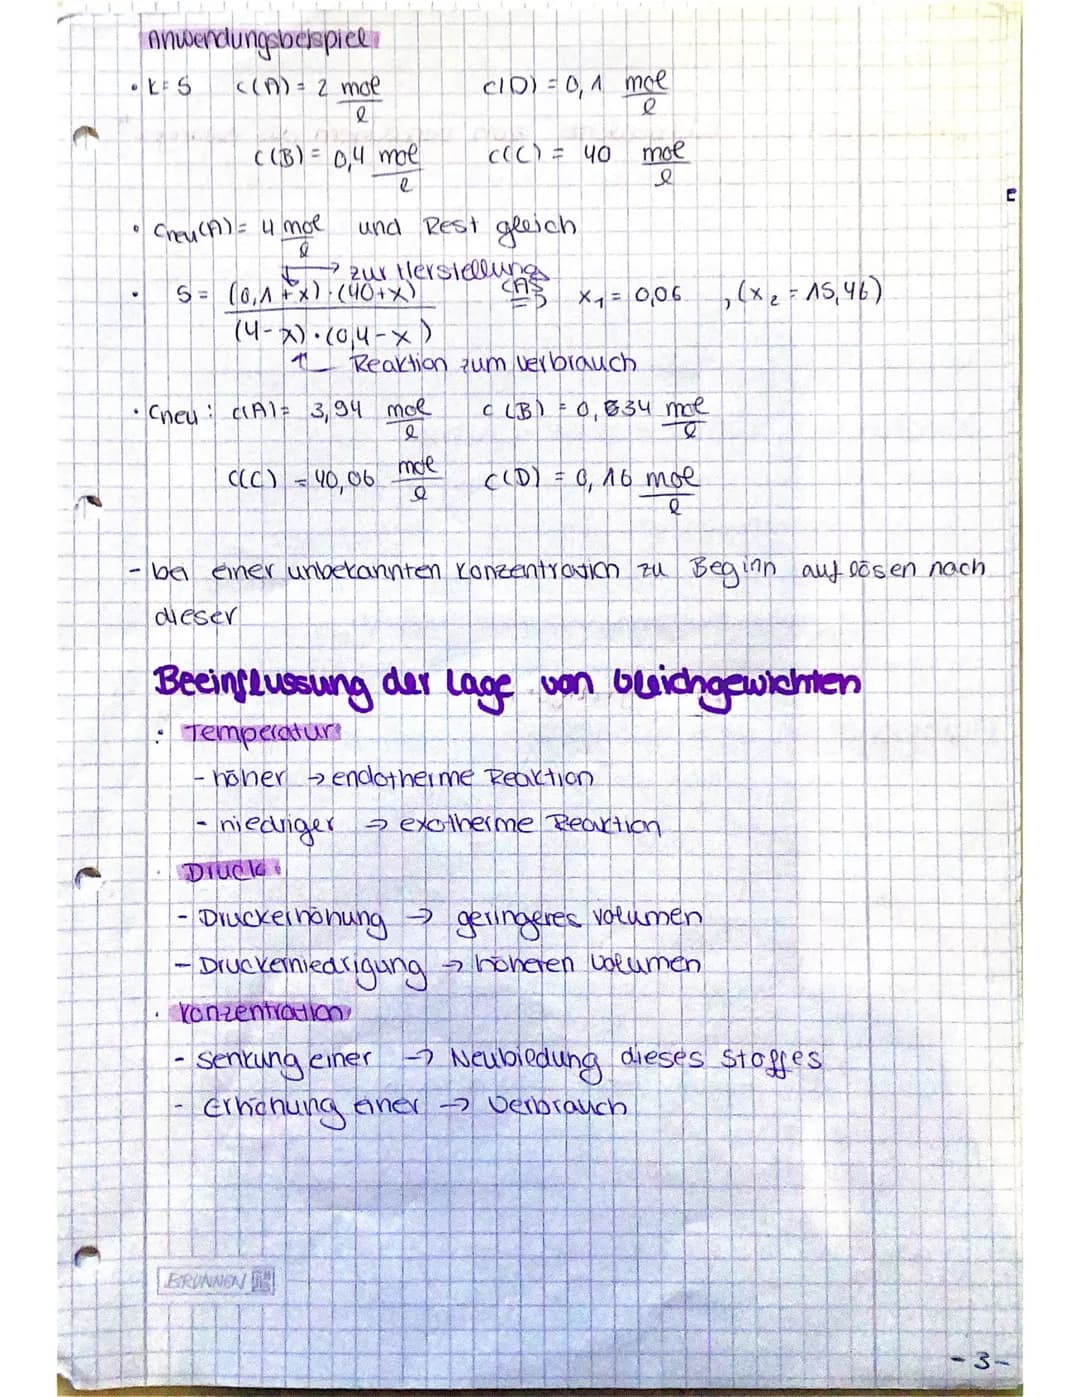 Anwendungsbeispiel
• K=5 c(A) = 2 mol/l c(D) = 0,1 mol/l
c(B) = 0,4 mol/l c(C) = 40 mol/l
• Cneu(A) = 4 mol/l und Rest gleich
→ zur Herstellung
• 5 = (0,1+x)·(40+x) / (4-x)·(0,4-x) CAS => x₁ = 0,06 , (x₂ = 15,46)
Reaktion zum verbrauch
• Cneu: c(A) = 3,94 mol/l c(B) = 0,334 mol/l
c(C) = 40,06 mol/l c(D) = 0,16 mol/l
- bei einer unbekannten Konzentration zu Beginn auflösen nach
dieser
Beeinflussung der Lage von Gleichgewichten
• Temperatur
- höher → endotherme Reaktion
- niedriger → exotherme Reaktion
• Druck
- Druckerhöhung → geringeres volumen
- Druckerniedrigung → höheren Volumen
• Konzentration
- Senkung einer → Neubildung dieses Stoffes
- Erhöhung einer → Verbrauch
BRUNNEN
-3-